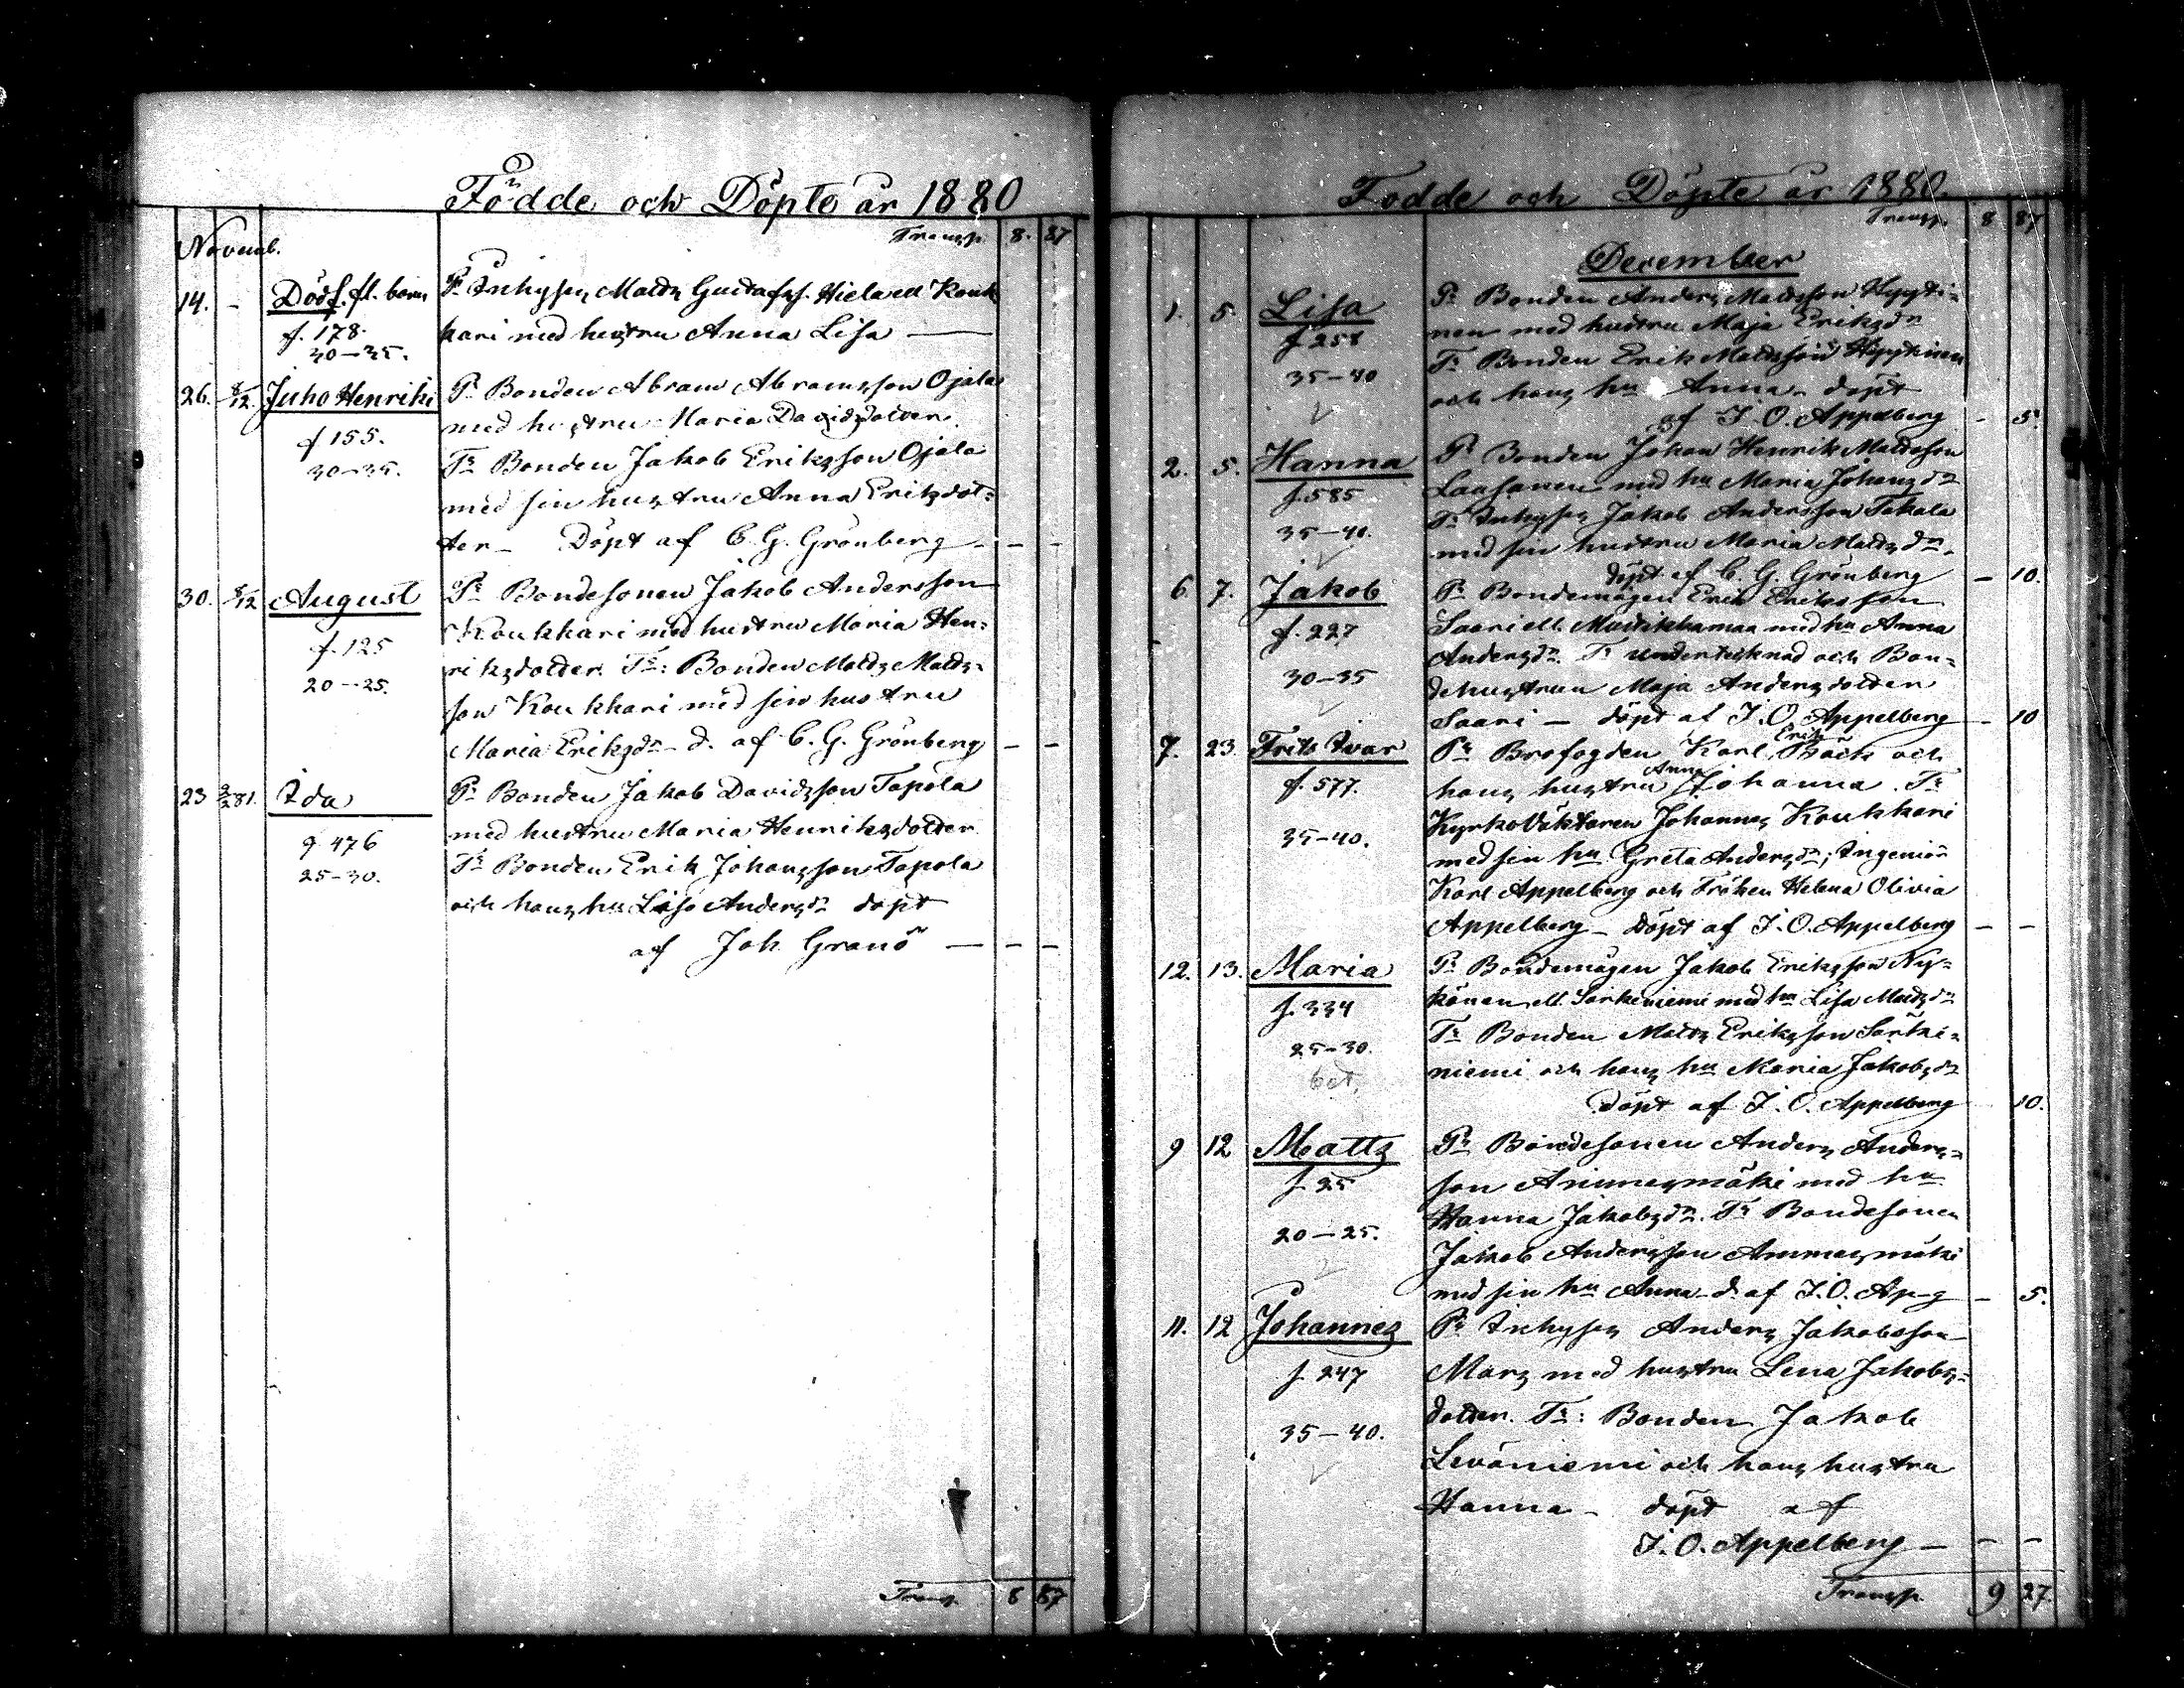 Födde och Döpte år 1880
Transp. 8. 87
Novemb.
14. - Dödf. fl. barn Pr Inhyses Matts Gustafss. Hielm ell Kouk
f. 178. kari med hustru Anna Lisa —
30-35.
26. 8/12 Juho Henrikki Pr Bonden Abram Abramsson Ojala
med hustru Maria Davidsdotter.
f 155. Tr Bonden Jakob Eriksson Ojala
30-35. med sin hustru Anna Eriksdot=
ter - Döpt af C. G. Grönberg - - -
30. 5/12 August Pr Bondesonen Jakob Andersson
f. 125 Koukkari med hustru Maria Hen=
20-25. riksdotter. Tr: Bonden Matts Matts=
son Koukkari med sin hustru
Maria Eriksdr - d. af C. G. Grönberg - -
23 2/2 81. Ida Pr Bonden Jakob Davidsson Tapola
f 476 med hustru Maria Henriksdotter
25-30. Tr Bonden Erik Johansson Tapola
och hans hu Lisa Andersdr döpt
af Joh. Granö — - -
Transp. 8 87
Födde och Döpte år 1880.
Transp. 8 87
December
1. 5. Lisa Pr Bonden Anders Mattsson Hyyti=
f 258 nen med hustru Maja Eriksdr
35-40 Tr Bonden Erik Mattsson Hyytinen
och hans hu Anna - döpt
af J. O. Appelberg - 5.
2. 5. Hanna Pr Bonden Johan Henrik Mattsson
f. 585 Laasanen med hu Maria Johansdr
35-40. Tr Inhyses Jakob Andersson Takala
med sin hustru Maria Mattsdr.
döpt af C. G. Grönberg - 10.
6. 7. Jakob Pr Bondemågen Erik Eriksson
f. 227 Saari ell. Mustikkamaa med hu Anna
30-35 Andersdr. Tr undertecknad och Bon=
dehustrun Maja Andersdotter
Saari - döpt af J. O. Appelberg - 10
7. 23. Frits Ivar Pr Brofogden Karl Erik Back och
f. 577. hans hustru Anna Johanna. Tr
35-40. Kyrkoväktaren Johannes Koukkari
med sin hu Greta Andersdr; Ingeniör
Karl Appelberg och Fröken Helena Olivia
Appelberg - Döpt af J. O. Appelberg - -
12. 13. Maria Pr Bondemågen Jakob Eriksson Ny=
f. 334 känen ell. Särkiniemi med hu Lisa Mattsdr
25-30. Tr Bonden Matts Eriksson Särki=
bet. niemi och hans hu Maria Jakobsdr
döpt af J. O. Appelberg 10.
9 12 Matts Pr Bondesonen Anders Anders=
f. 25 son Ammesmäki med hu
20-25. Hanna Jakobsdr. Tr Bondesonen
Jakob Andersson Ammesmäki
med sin hu Anna - d. af J. O. Ap-g - 5.
11. 12 Johannes Pr Inhyses Anders Jakobsson
f. 247 Mars med hustru Lena Jakobs=
35-40. dotter. Tr: Bonden Jakob
Leväniemi och hans hustru
Hanna - döpt af
J. O. Appelberg — - -
Transp. 9 27.